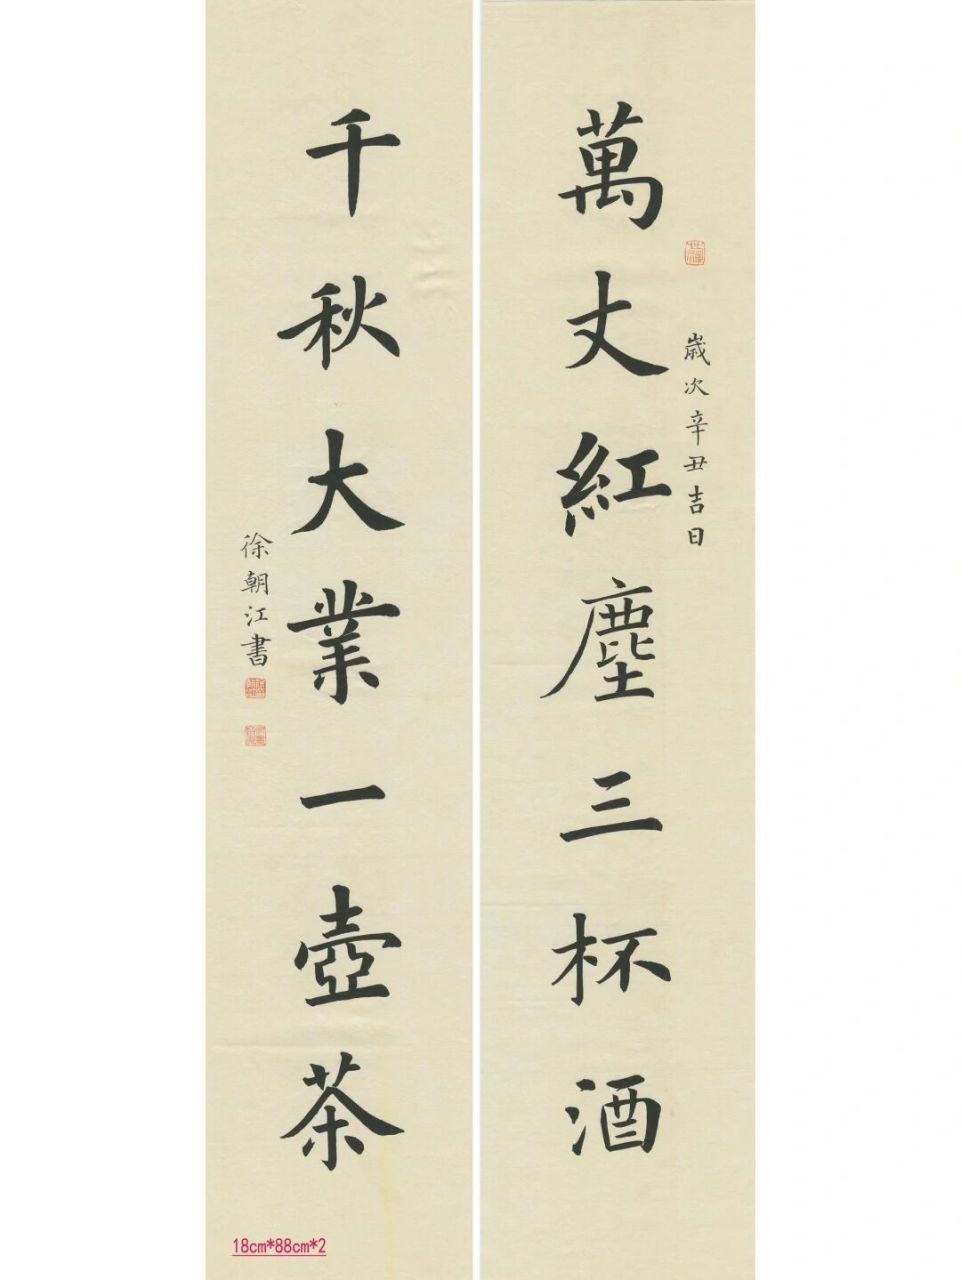 萬丈紅塵三杯酒
歲次辛丑吉日
千秋大業一壺茶
徐朝江書
18cm*88cm*2